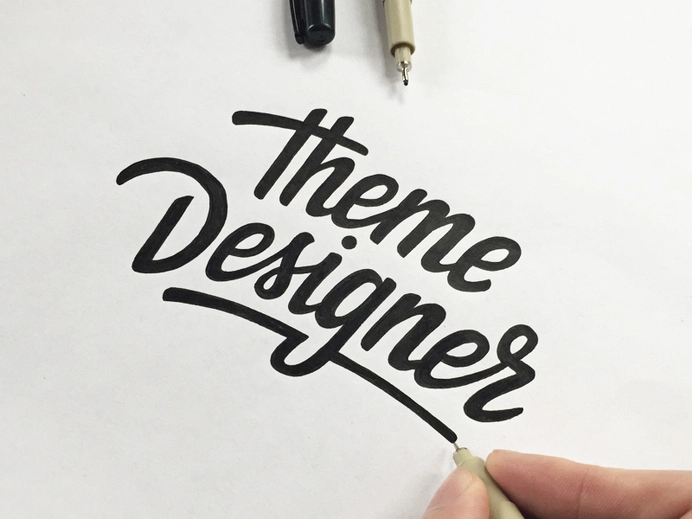 Theme
Designer